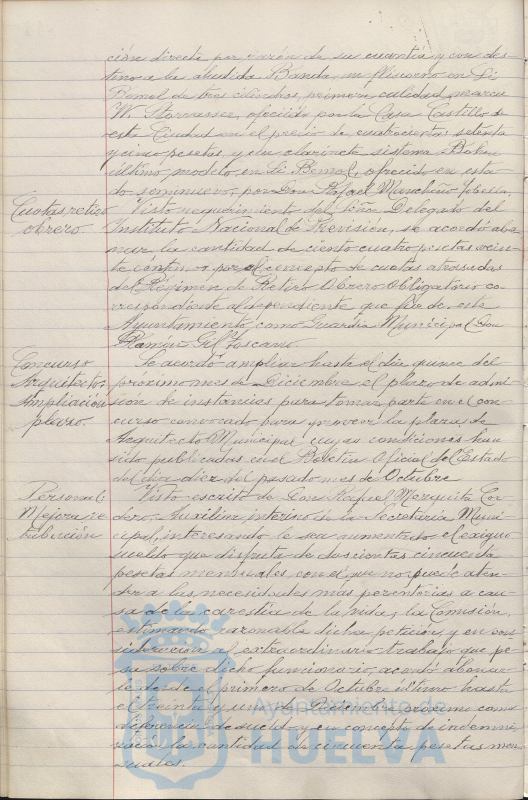 ción directa por razón de su cuantía y con des-
tino a la aludida Banda, un fliscorno en Si
Bemol de tres cilindros, primera calidad marca
W. ofrecido por la Casa Castillo de
esta Ciudad en el precio de cuatrocientas setenta
y cinco pesetas, y un clarinete sistema Bohem
último modelo en Si Bemol, ofrecido en esta-
do seminuevo, por Don Rafael Mancheño
Cuotas retiro
obrero.
Visto requerimiento del Señor Delegado del
Instituto Nacional de Previsión, se acordó abo-
nar la cantidad de ciento cuatro pesetas vein-
te céntimos por el concepto de cuotas atrasadas
del Régimen de Retiro Obrero Obligatorio co-
rrespondiente al dependiente que fué de este
Ayuntamiento como Guardia Municipal Don
Ramiro Gil Toscano.
Concurso
Arquitecto:
Ampliación
plazo.
Se acordó ampliar hasta el día quince del
próximo mes de Diciembre el plazo de admi-
sión de instancias para tomar parte en el con-
curso convocado para proveer la plaza de
Arquitecto Municipal cuyas condiciones han
sido publicadas en el Boletín Oficial del Estado
del día diez del pasado mes de Octubre
Personal:
Mejora re-
tribución
Visto escrito de Don Rafael Mezquita Cor-
dero, Auxiliar interino de la Secretaría Muni-
cipal, interesando le sea aumentado el exiguo
sueldo que disfruta de doscientas cincuenta
pesetas mensuales, con el que no puede aten-
der a las necesidades más perentorias a cau-
sa de la carestía de la vida, la Comisión,
estimando razonable dicha petición y en con-
sideración al extraordinario trabajo que pe-
sa sobre dicho funcionario, acordó abonar-
le desde el primero de Octubre último hasta
el treinta y uno de Diciembre próximo como
diferencia de sueldo y en concepto de indemni-
zación la cantidad de cincuenta pesetas men-
suales.
Ayuntamiento de
HUELVA